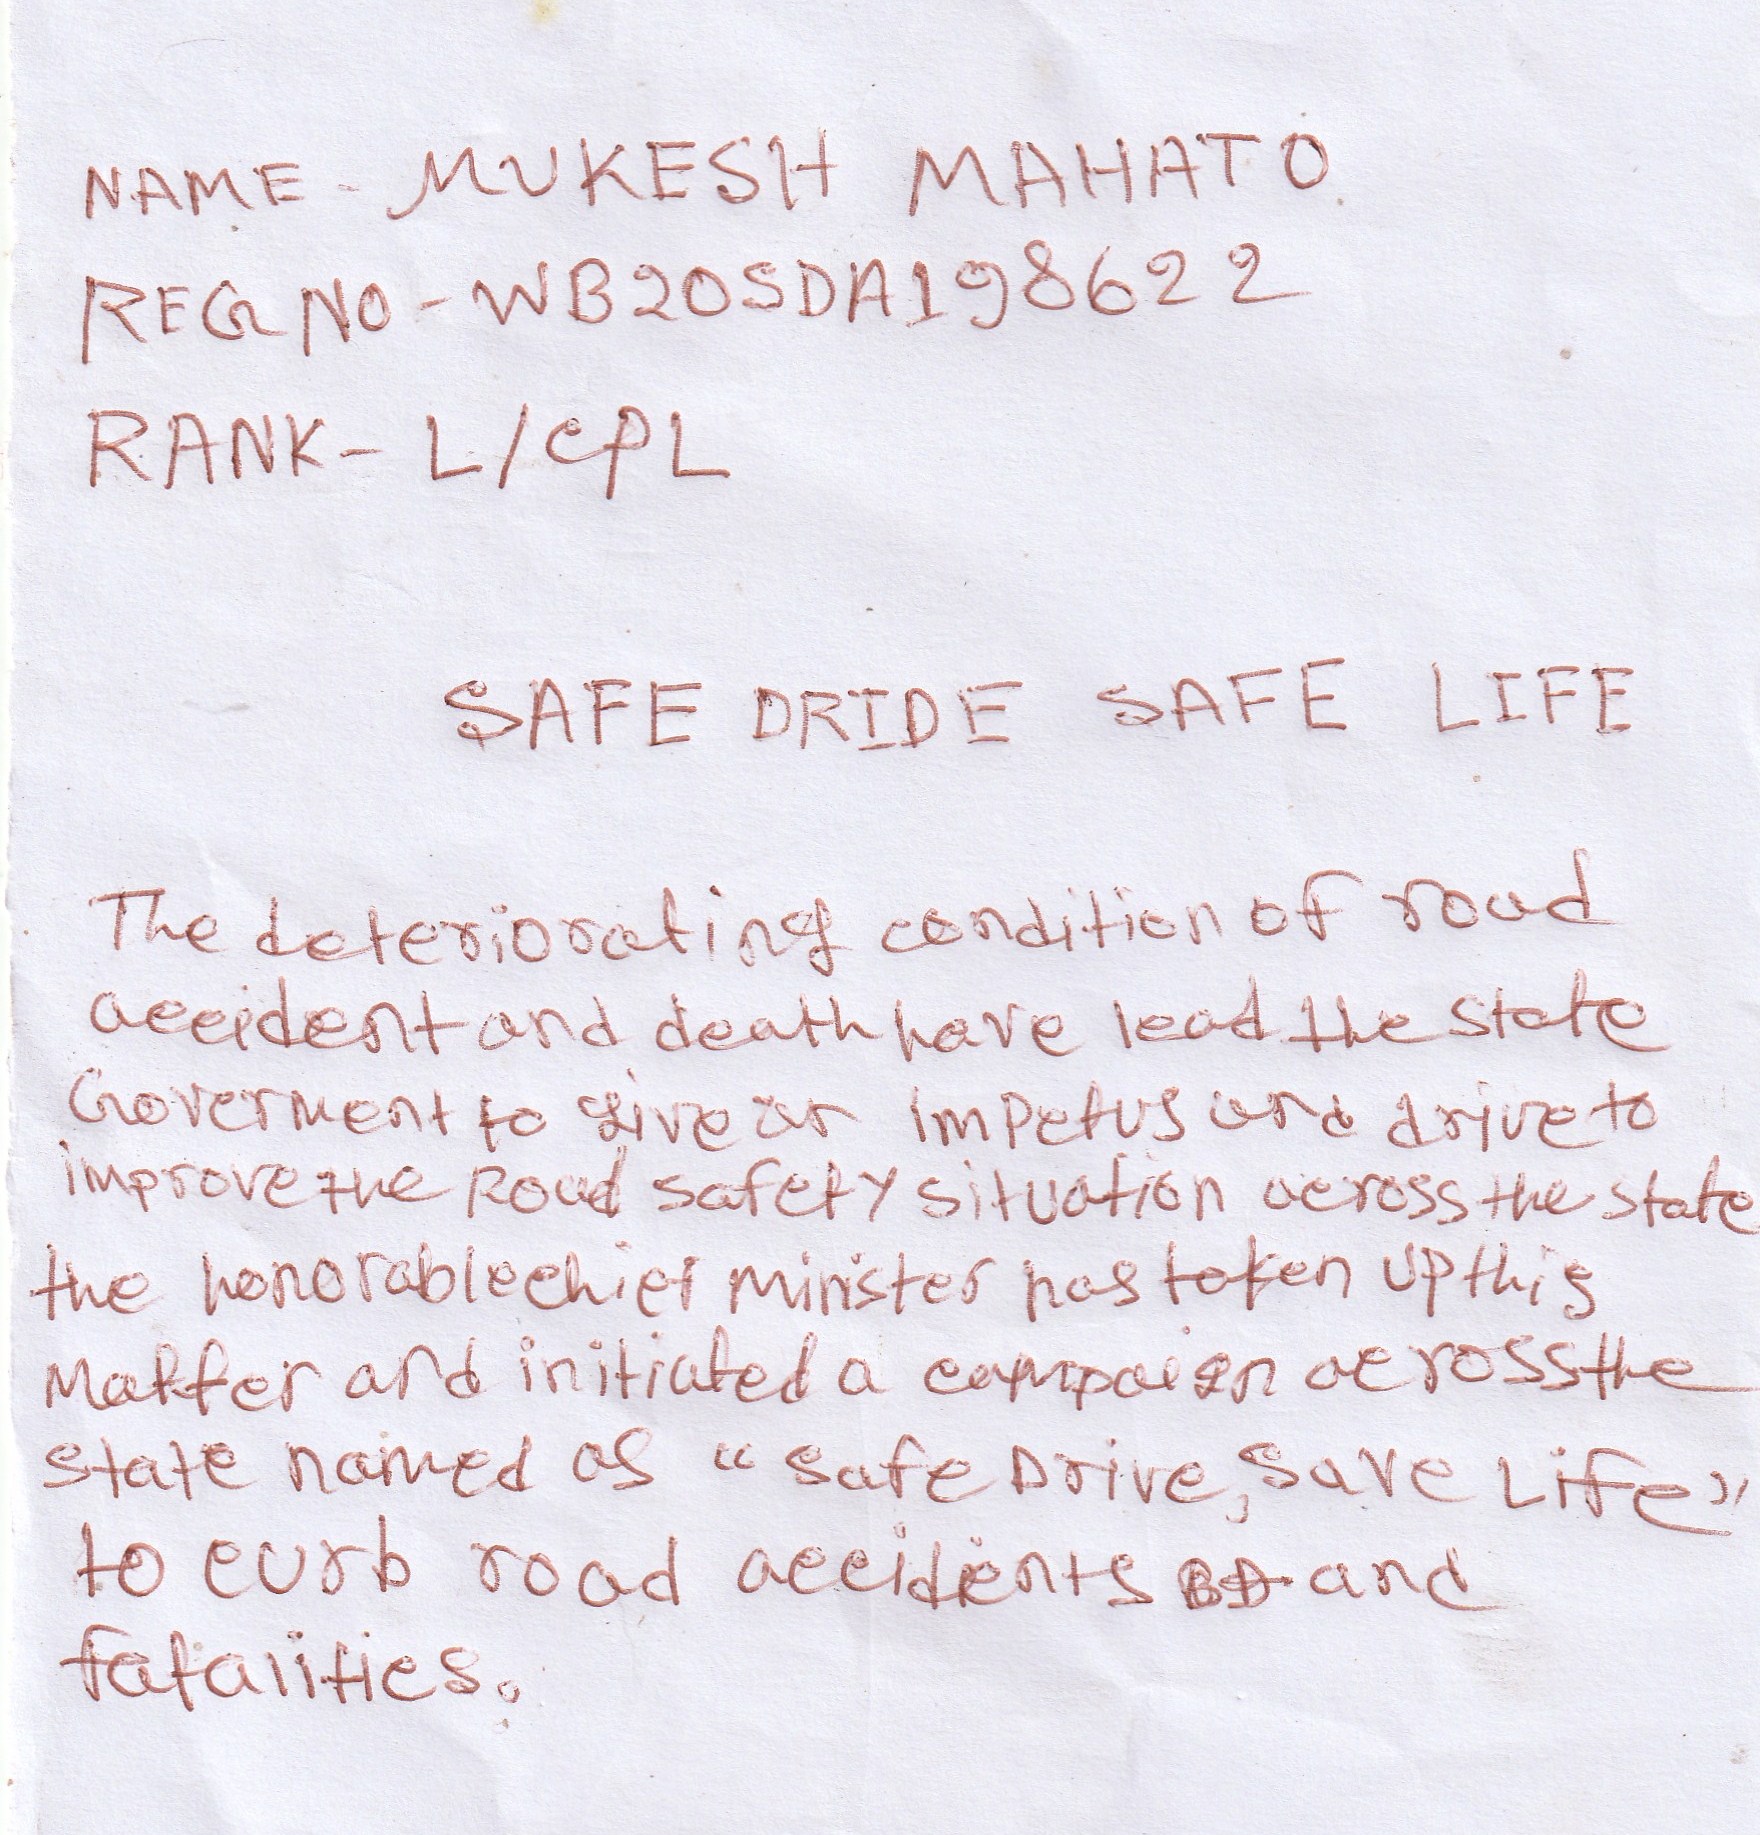 NAME - MUKESH MAHATO.
REG NO - WB20SDA198622
RANK - L/CPL
SAFE DRIDE SAFE LIFE
The deteriorating condition of road
accident and death have lead the state
Goverment to give an impetus and drive to
improve the Road safety situation across the state
the honorable chief minister has taken up this
Matter and initiated a campaign across the
state named as "Safe Drive, Save Life"
to curb road accidents and
fatalities.